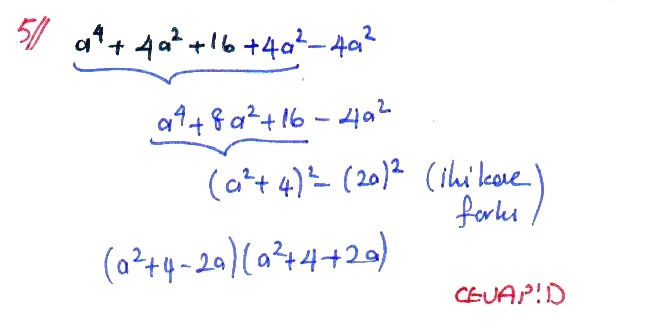 5//
a⁴ + 4a² + 16 + 4a² - 4a²
a⁴ + 8a² + 16 - 4a²
(a² + 4)² - (2a)² (iki kare farkı)
(a² + 4 - 2a)(a² + 4 + 2a)
CEVAP:D